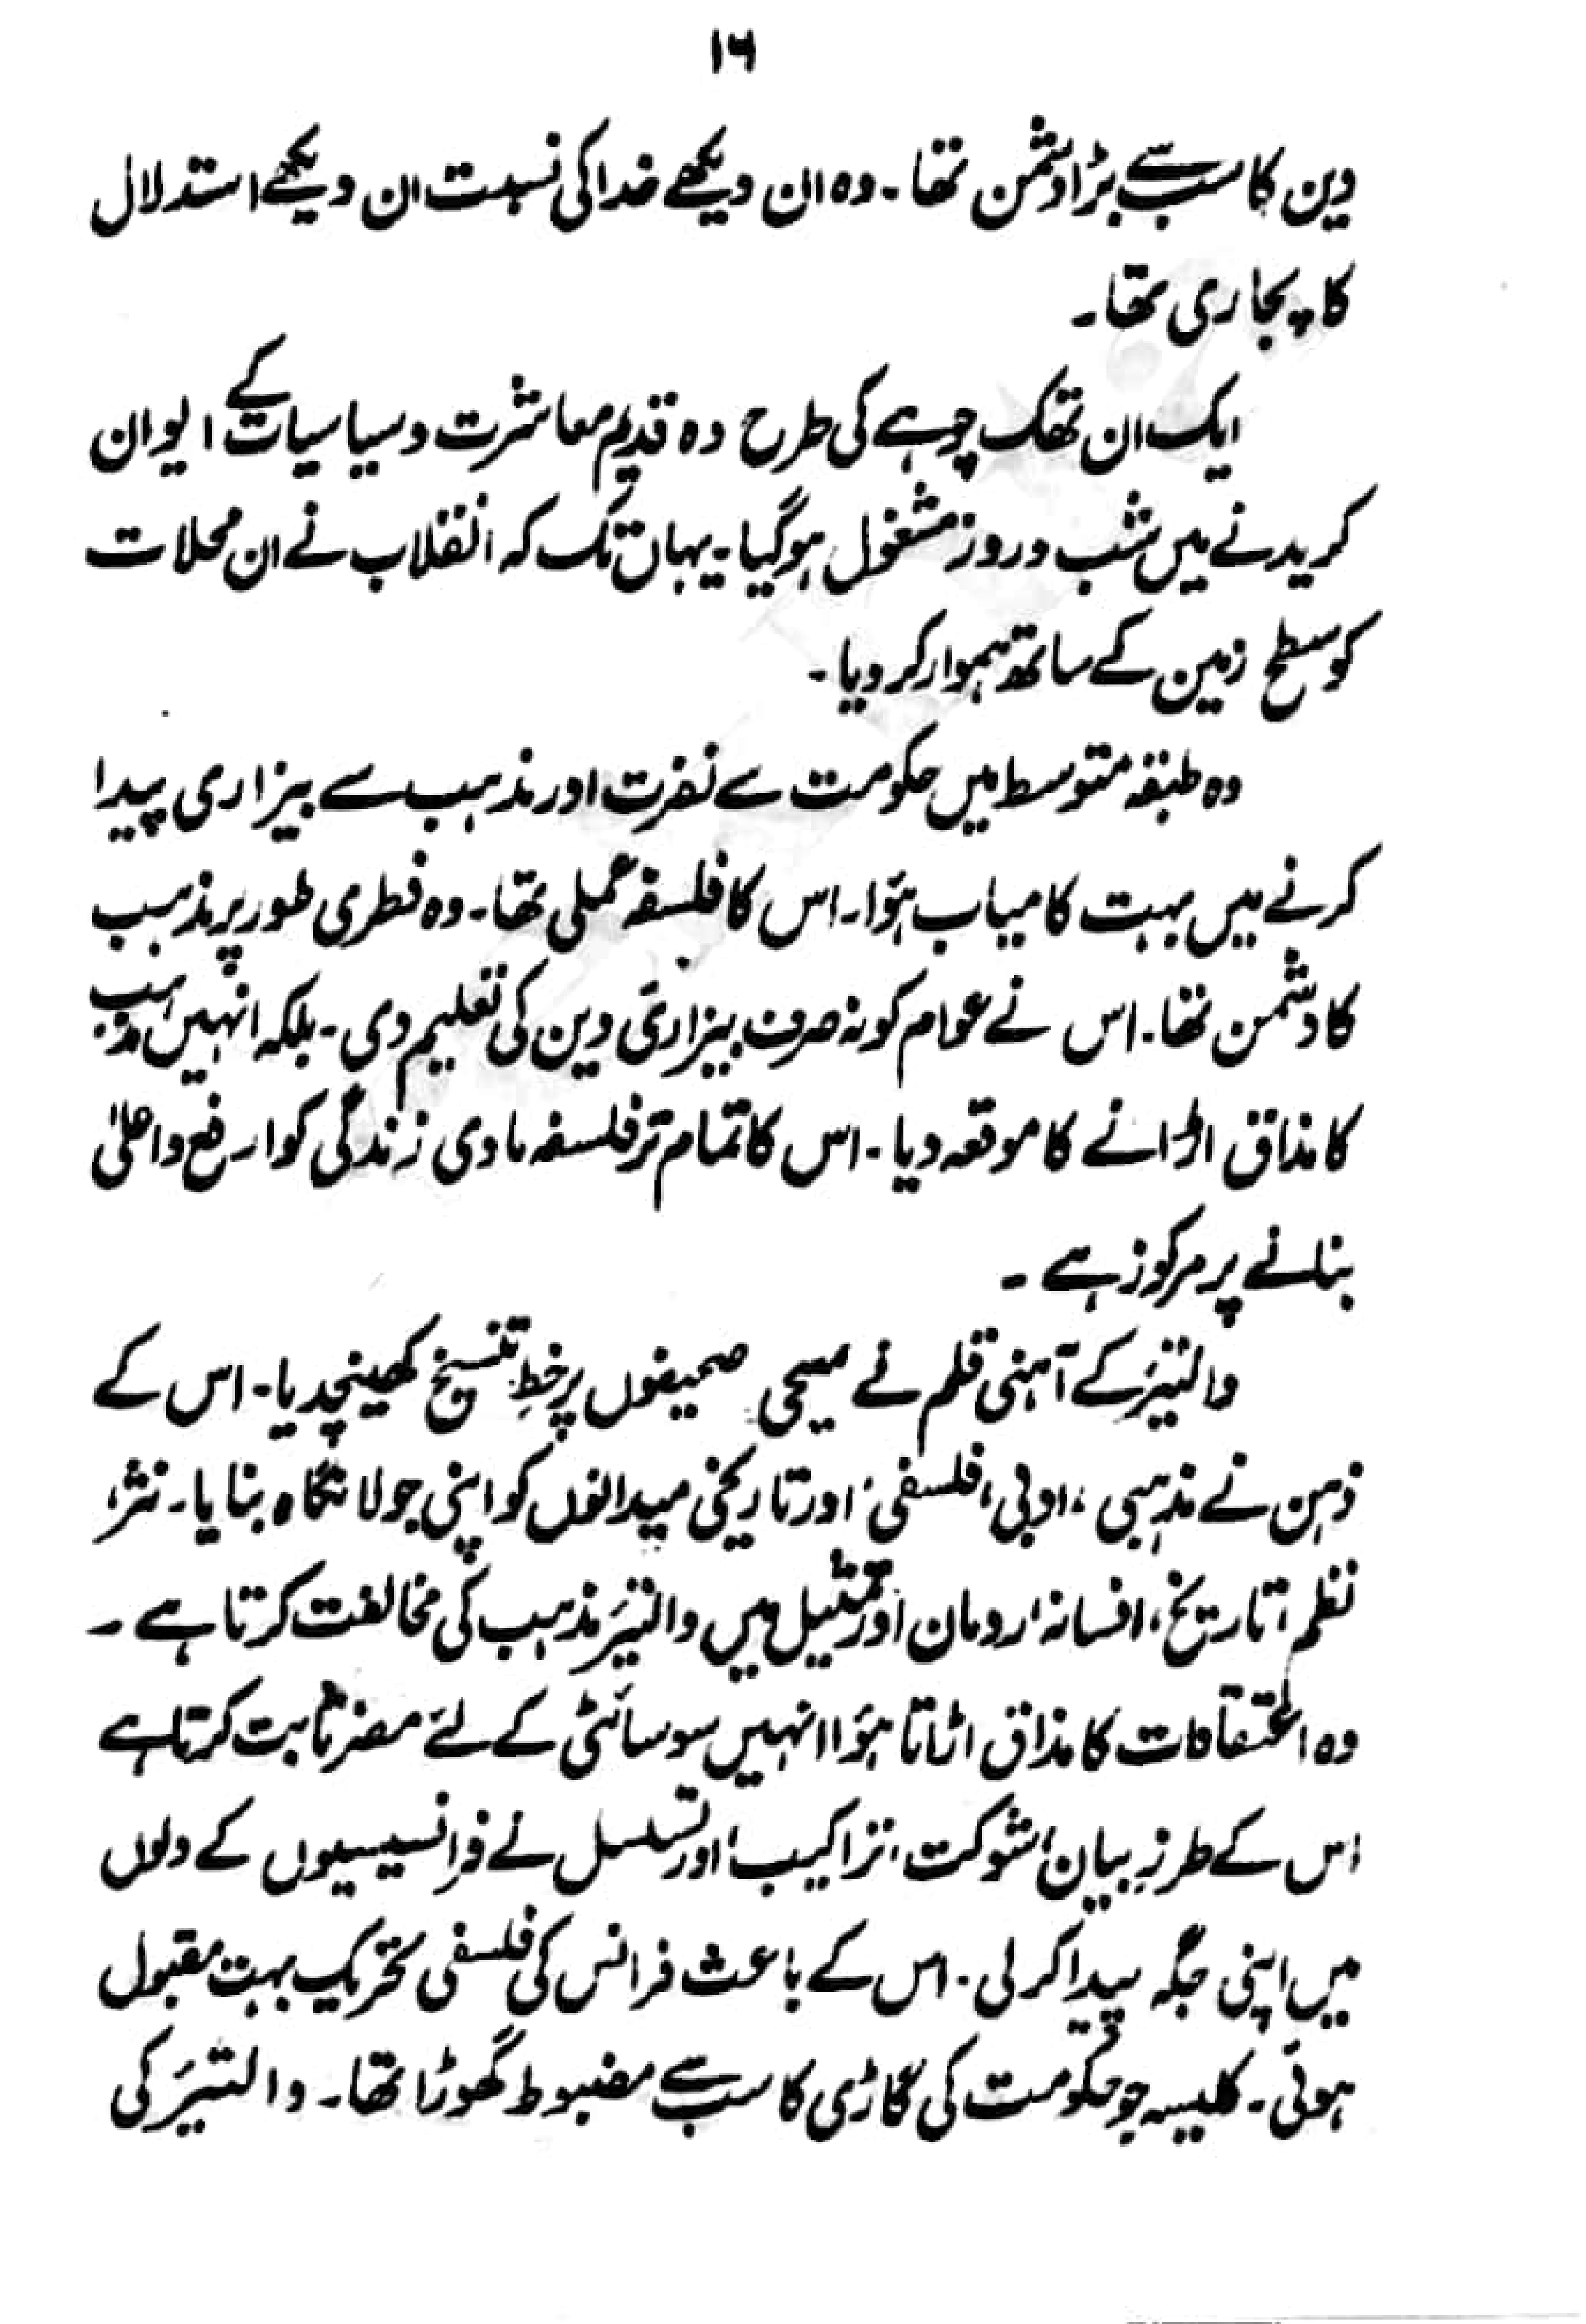 ۱۶
دین کا سب سے بڑا دشمن تھا۔ وہ ان دیکھے خدا کی نسبت ان دیکھے استدلال
کا پجاری تھا۔
ایک ان تھک چوہے کی طرح وہ قدیم معاشرت و سیاسیات کے ایوان
کریدنے میں شب و روز مشغول ہوگیا۔ یہاں تک کہ انقلاب نے ان محلات
کو سطح زمین کے ساتھ ہموار کر دیا۔
وہ طبقہ متوسط میں حکومت سے نفرت اور مذہب سے بیزاری پیدا
کرنے میں بہت کامیاب ہؤا۔ اس کا فلسفہ عملی تھا۔ وہ فطری طور پر مذہب
کا دشمن تھا۔ اس نے عوام کو نہ صرف بیزاریٔ دین کی تعلیم دی۔ بلکہ انہیں مذہب
کا مذاق اڑانے کا موقعہ دیا۔ اس کا تمام تر فلسفہ مادی زندگی کو ارفع و اعلیٰ
بنانے پر مرکوز ہے۔
والتیر کے آہنی قلم نے مسیحی صحیفوں پر خطِ تنسیخ کھینچدیا۔ اس کے
ذہن نے مذہبی، ادبی، فلسفی، اور تاریخی میدانوں کو اپنی جولانگاہ بنایا۔ نثر،
نظم، تاریخ، افسانہ، رومان اور تمثیل میں والتیر مذہب کی مخالفت کرتا ہے۔
وہ اعتقادات کا مذاق اڑاتا ہؤا انہیں سوسائٹی کے لئے مضر ثابت کرتا ہے
اس کے طرزِ بیان، شوکت، تراکیب، اور تسلسل نے فرانسیسیوں کے دلوں
میں اپنی جگہ پیدا کر لی۔ اس کے باعث فرانس کی فلسفی تحریک بہت مقبول
ہوئی۔ کلیسہ جو حکومت کی گاڑی کا سب سے مضبوط گھوڑا تھا۔ والتیر کی